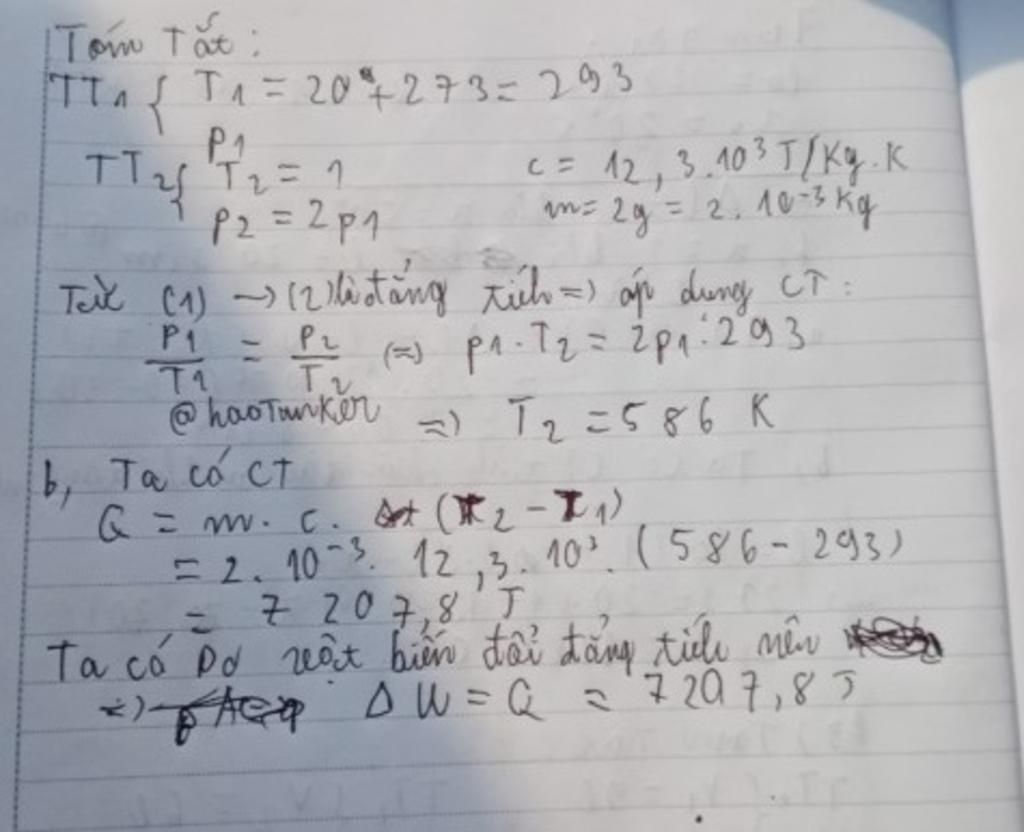 Tóm Tắt:
TT1 { T1 = 20 + 273 = 293
p1
TT2 { T2 = ? c = 12,3.10³ J/Kg.K
p2 = 2p1 m = 2g = 2.10⁻³ Kg
Từ (1) → (2) là đẳng tích => áp dung CT:
p1/T1 = p2/T2 (=) p1.T2 = 2p1.293
@haoTunKer => T2 = 586 K
b, Ta có CT
Q = m.c. (T2 - T1)
= 2.10⁻³. 12,3.10³. (586 - 293)
= 7 207,8 J
Ta có Do biến đổi đẳng tích nên
=) ΔU = Q = 7207,8 J